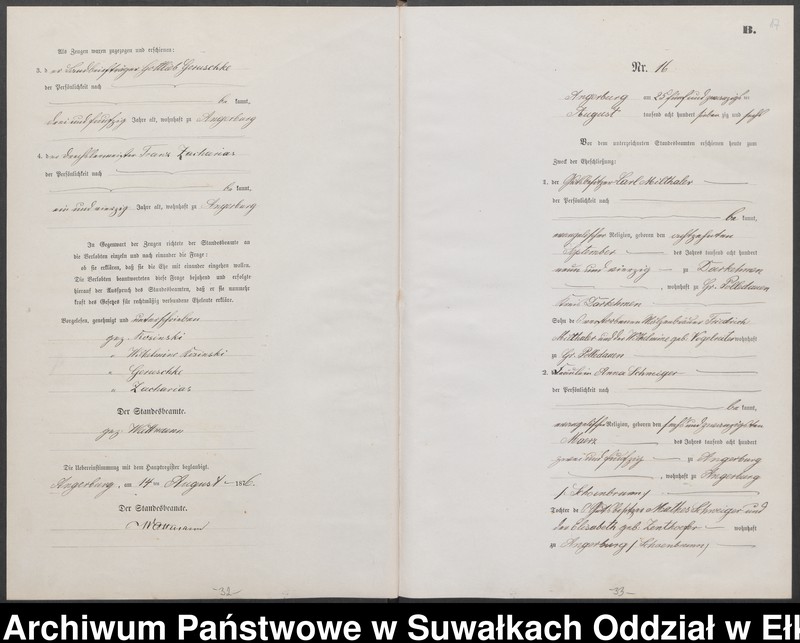 Als Zeugen waren zugezogen und erschienen:
3. der Landbriefträger Gottlieb Goruschke
der Persönlichkeit nach
be kannt,
drei und fünfzig Jahre alt, wohnhaft zu Angerburg
4. der Drechslermeister Franz Zacharias
der Persönlichkeit nach
be kannt,
ein und vierzig Jahre alt, wohnhaft zu Angerburg
In Gegenwart der Zeugen richtete der Standesbeamte an
die Verlobten einzeln und nach einander die Frage:
ob sie erklären, daß sie die Ehe mit einander eingehen wollen.
Die Verlobten beantworteten diese Frage bejahend und erfolgte
hierauf der Ausspruch des Standesbeamten, daß er sie nunmehr
kraft des Gesetzes für rechtmäßig verbundene Eheleute erkläre.
Vorgelesen, genehmigt und unterschrieben
gez. Kosinski
" Wilhelmine Kosinski
" Goruschke
" Zacharias
Der Standesbeamte.
gez. Wittmann
Die Uebereinstimmung mit dem Hauptregister beglaubigt.
Angerburg, am 14ten August 1876.
Der Standesbeamte.
Wittmann
32
B.
Nr. 16
Angerburg am 25 fünfundzwanzigsten
August tausend acht hundert sieben zig und sechs
Vor dem unterzeichneten Standesbeamten erschienen heute zum
Zweck der Eheschließung:
1. der Gutsbesitzer Carl Milthaler
der Persönlichkeit nach
be kannt,
evangelischer Religion, geboren den achtzehnten
September des Jahres tausend acht hundert
neun und vierzig zu Darkehmen
, wohnhaft zu Gr. Pelledauen
Kreis Darkehmen
Sohn des verstorbenen Friedrich
Milthaler und der Wilhelmine geb. wohnhaft
zu Gr. Pelledauen
2. Fräulein Anna Schweiger
der Persönlichkeit nach
be kannt,
evangelischer Religion, geboren den fünf und zwanzigsten
Maerz des Jahres tausend acht hundert
zwei und fünfzig zu Angerburg
, wohnhaft zu Angerburg
/ Schoenbrunn /
Tochter des Gutsbesitzers Mathes Schweiger und
der Elisabeth geb. Zenthoefer wohnhaft
zu Angerburg / Schoenbrunn /
33
Archiwum Państwowe w Suwałkach Oddział w Eł